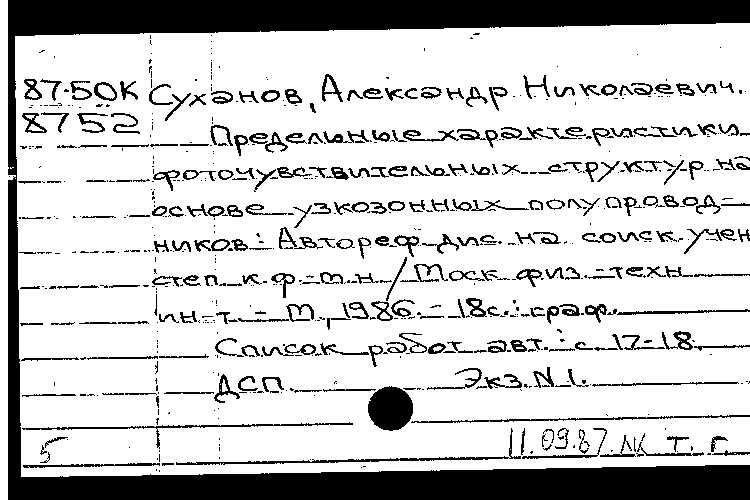 87-50К Суханов, Александр Николаевич.
8752
Предельные характеристики
фоточувствительных структур на
основе узкозонных полупровод-
ников: Автореф. дис. на соиск. учен
степ. к.ф.-м.н / Моск физ.-техн
ин-т. - М., 1986. - 18с.: граф.
Список работ авт.: с. 17-18.
ДСП. Экз. N 1.
5 11.09.87. NК Т. Г.